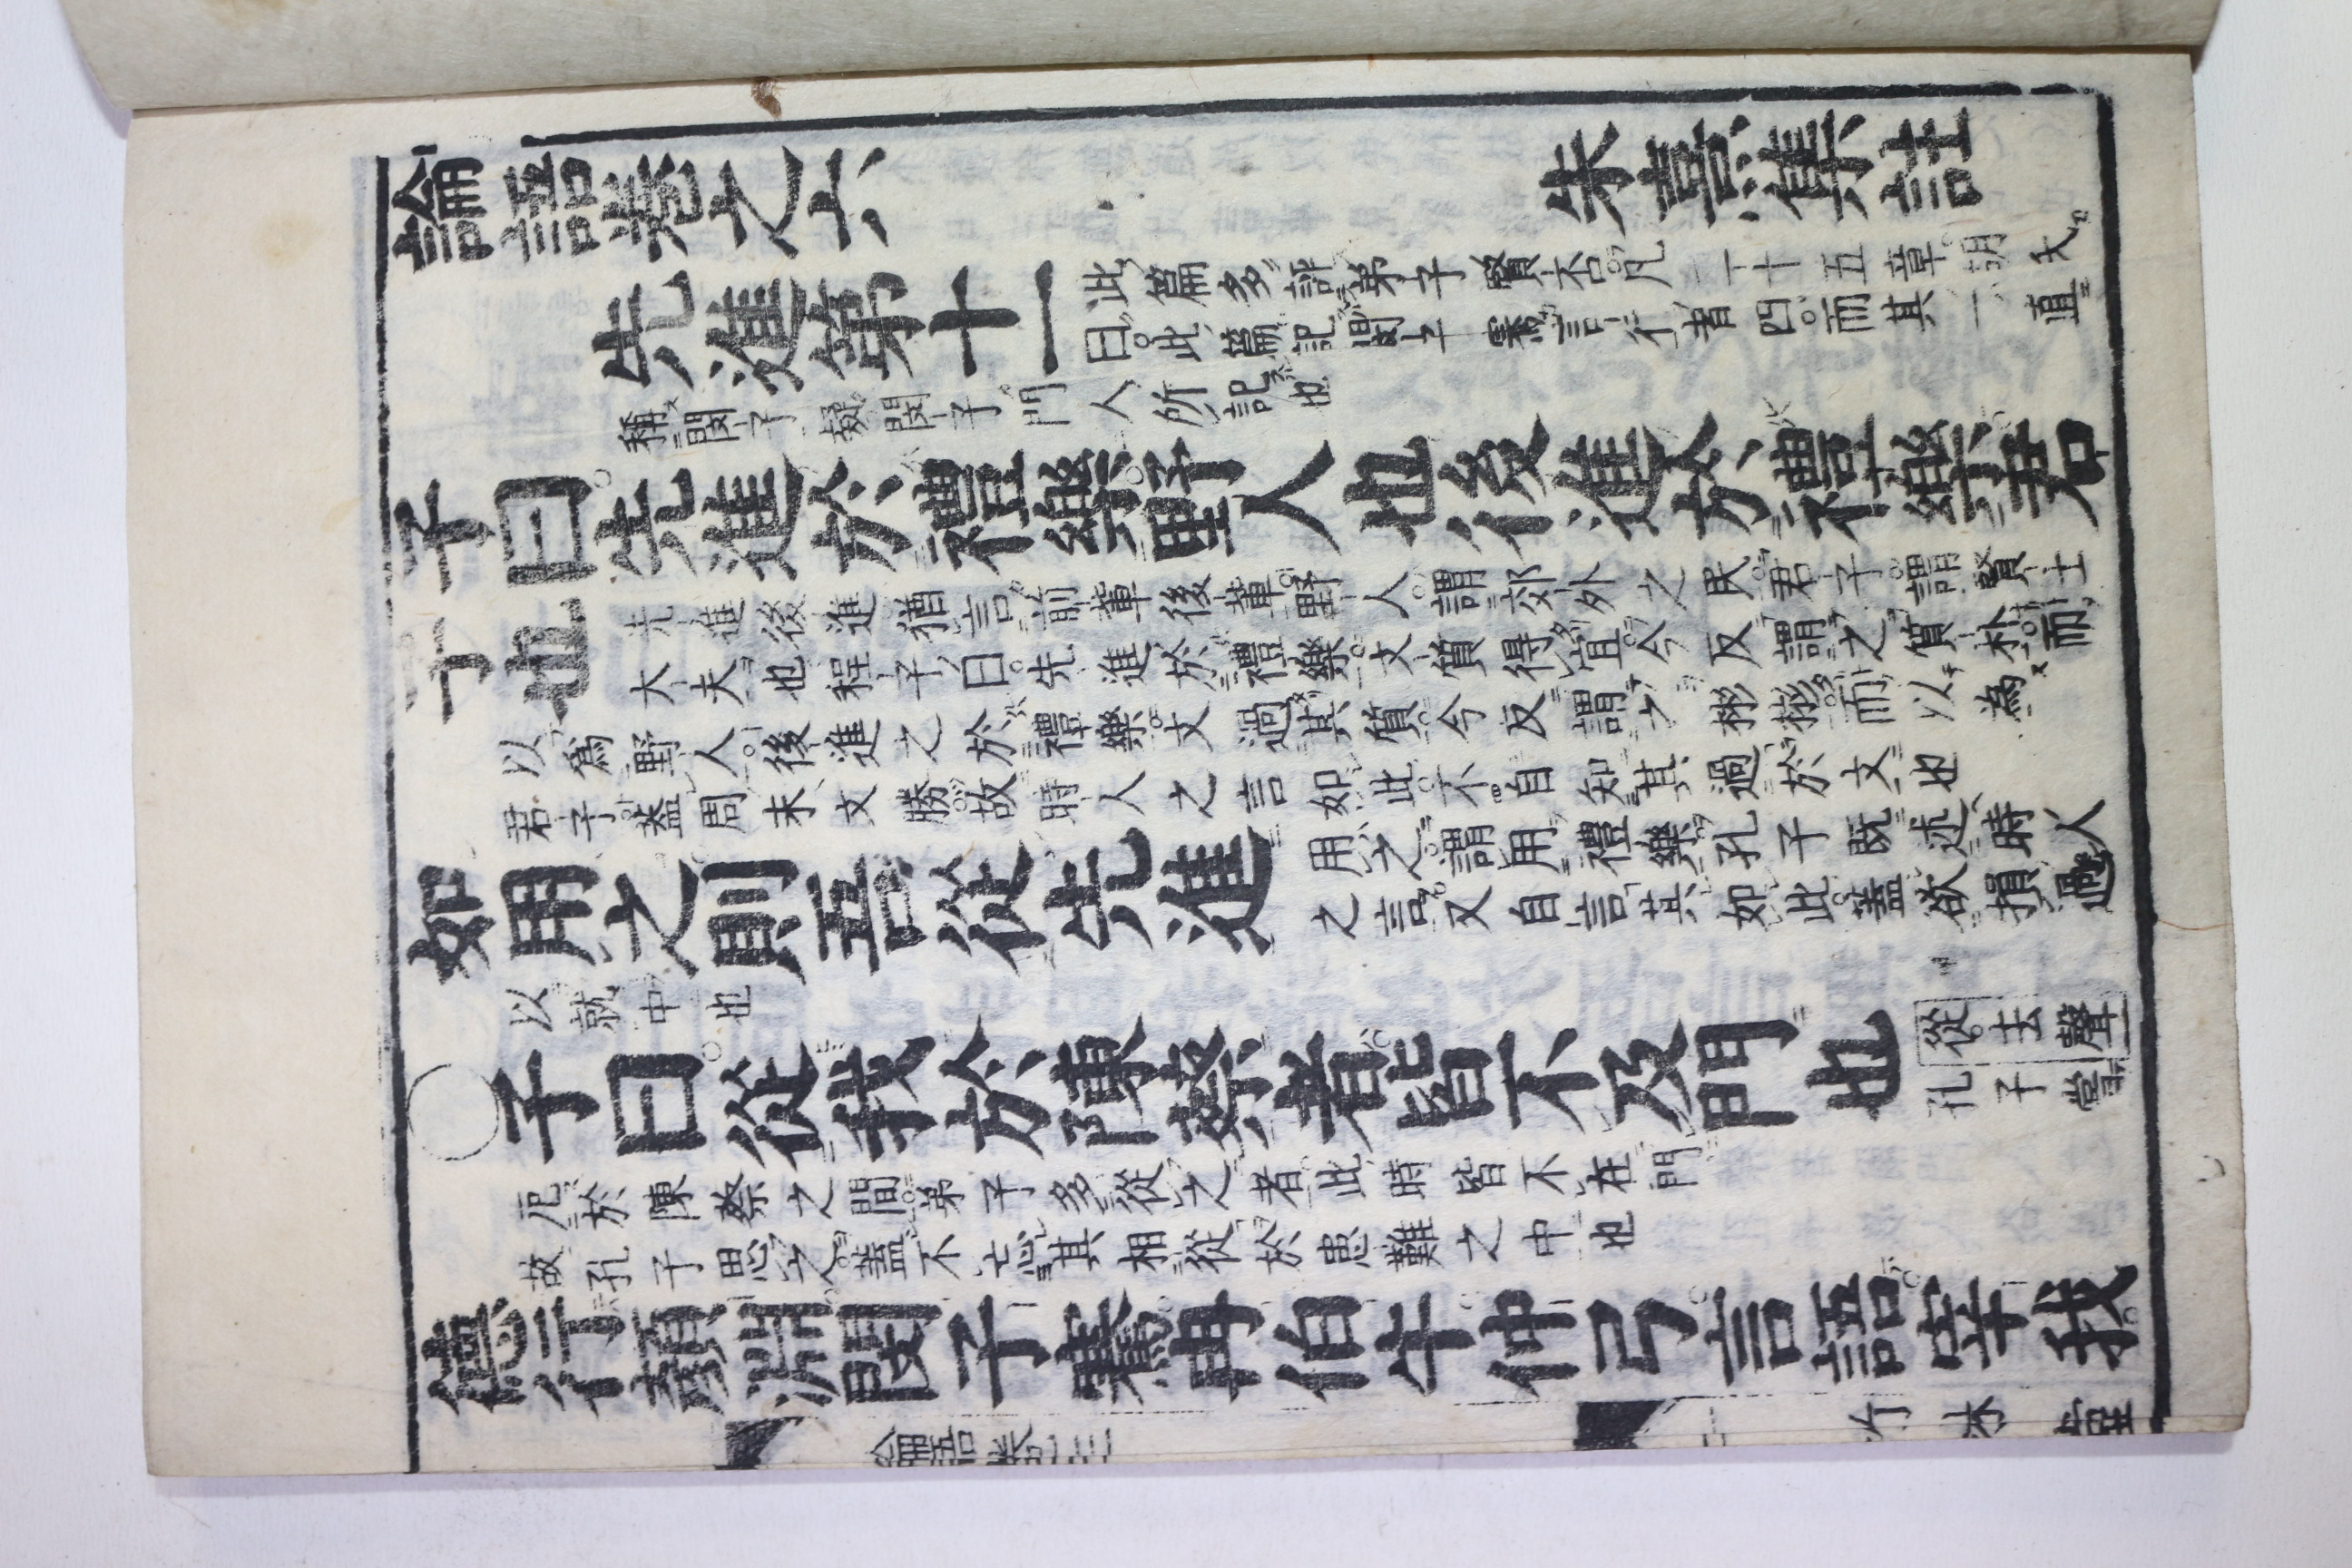 論語卷之六 朱熹集註
先進第十一
此篇多評弟子賢否凡二十五章胡氏
曰此篇記閔子騫言行者四而其一直
稱閔子疑閔子門人所記也
子曰先進於禮樂野人也後進於禮樂君
子也
先進後進猶言前輩後輩野人謂郊外之民君子謂賢士
大夫也程子曰先進於禮樂文質得宜今反謂之質朴而
以爲野人後進之於禮樂文過其質今反謂之彬彬而以為
君子蓋周末文勝故時人之言如此不自知其過於文也
如用之則吾從先進
用之謂用禮樂孔子既述時人
之言又自言其如此蓋欲損過
以就中也
○子曰從我於陳蔡者皆不及門也
從去聲
孔子嘗
厄於陳蔡之間弟子多從之者此時皆不在門
故孔子思之蓋不忘其相從於患難之中也
德行顏淵閔子騫冉伯牛仲弓言語宰我
論語卷三 一